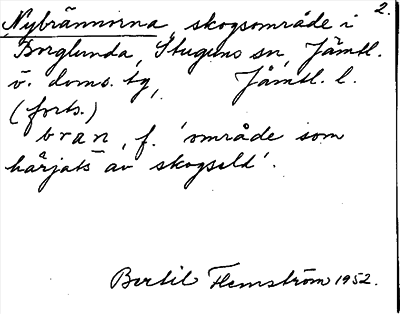 2.
Nybrännorna, skogsområde i
Borglunda, Stuguns sn, Jämtl.
v. doms. tg, Jämtl. l.
(forts.)
bran, f. 'område som
härjats av skogseld'.
Bertil Flemström 1952.